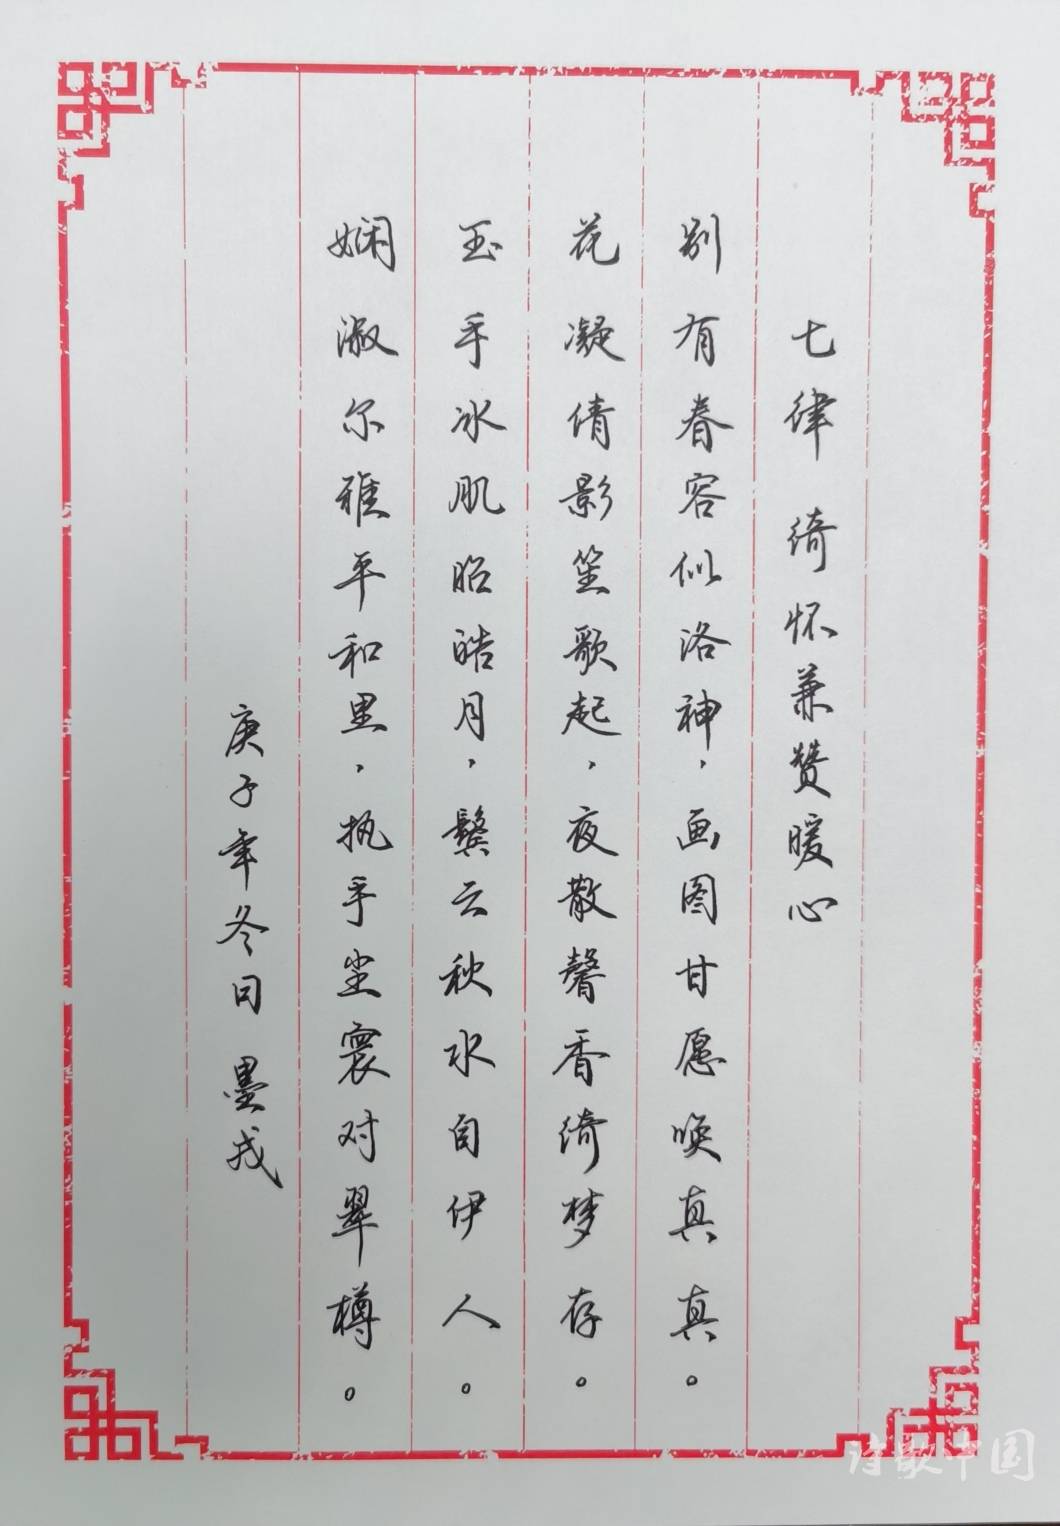 七律 绮怀兼赞暖心
别有春容似洛神，画图甘愿唤真真。
花凝倩影笙歌起，夜散馨香绮梦存。
玉手冰肌昭皓月，鬓云秋水自伊人。
娴淑尔雅平和里，执手尘寰对翠樽。
庚子年冬日 墨戎
诗歌中国